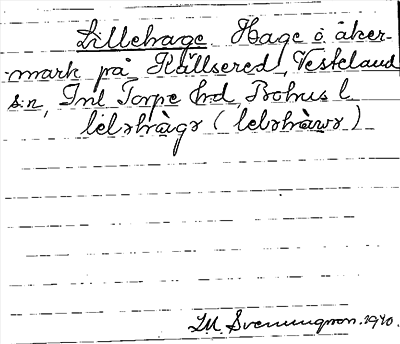 Lillehage Hage o. åker-
mark på Hällsered, Västerlanda
s:n, Inl Torpe hd, Bohus l.
leləhàgə (leləhàwə)
J.M. Svenningson. 1940.